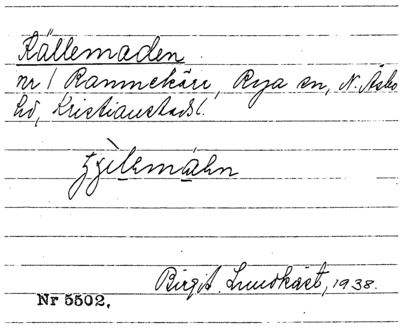 Källemaden
nr 1 Rammekärr, Rya sn, N. Åsbo
hd, Kristianstads l.
Birgit Lundkvist, 1938.
Nr 5502.